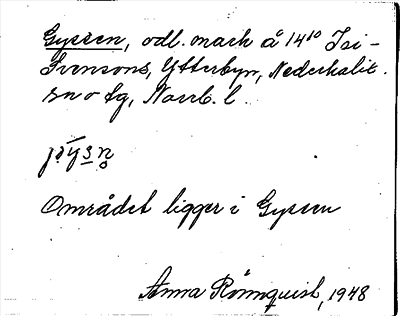 Gyssen, odl. mark å 14¹⁰ Isi-
Svensons, Ytterbyn, Nederkalix.
sn o tg, Norrb. l.
Området ligger i Gyssen
Anna Rönnquist, 1948